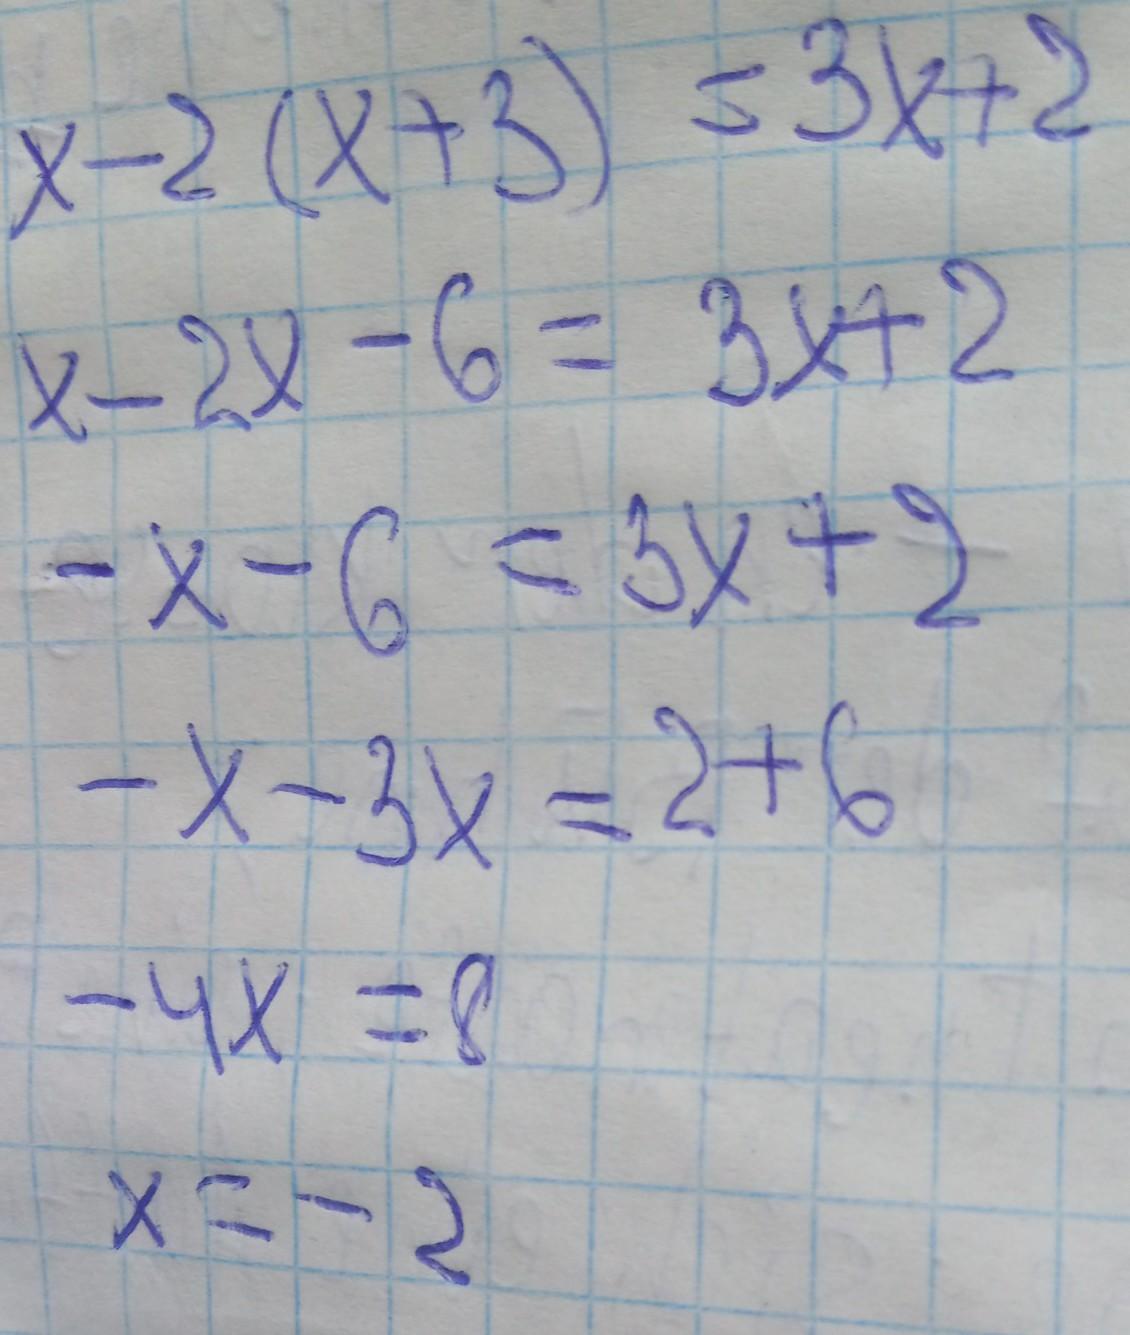 x-2(x+3) =3x+2
x-2x-6= 3x+2
-x-6=3x+2
-x-3x=2+6
-4x=8
x=-2